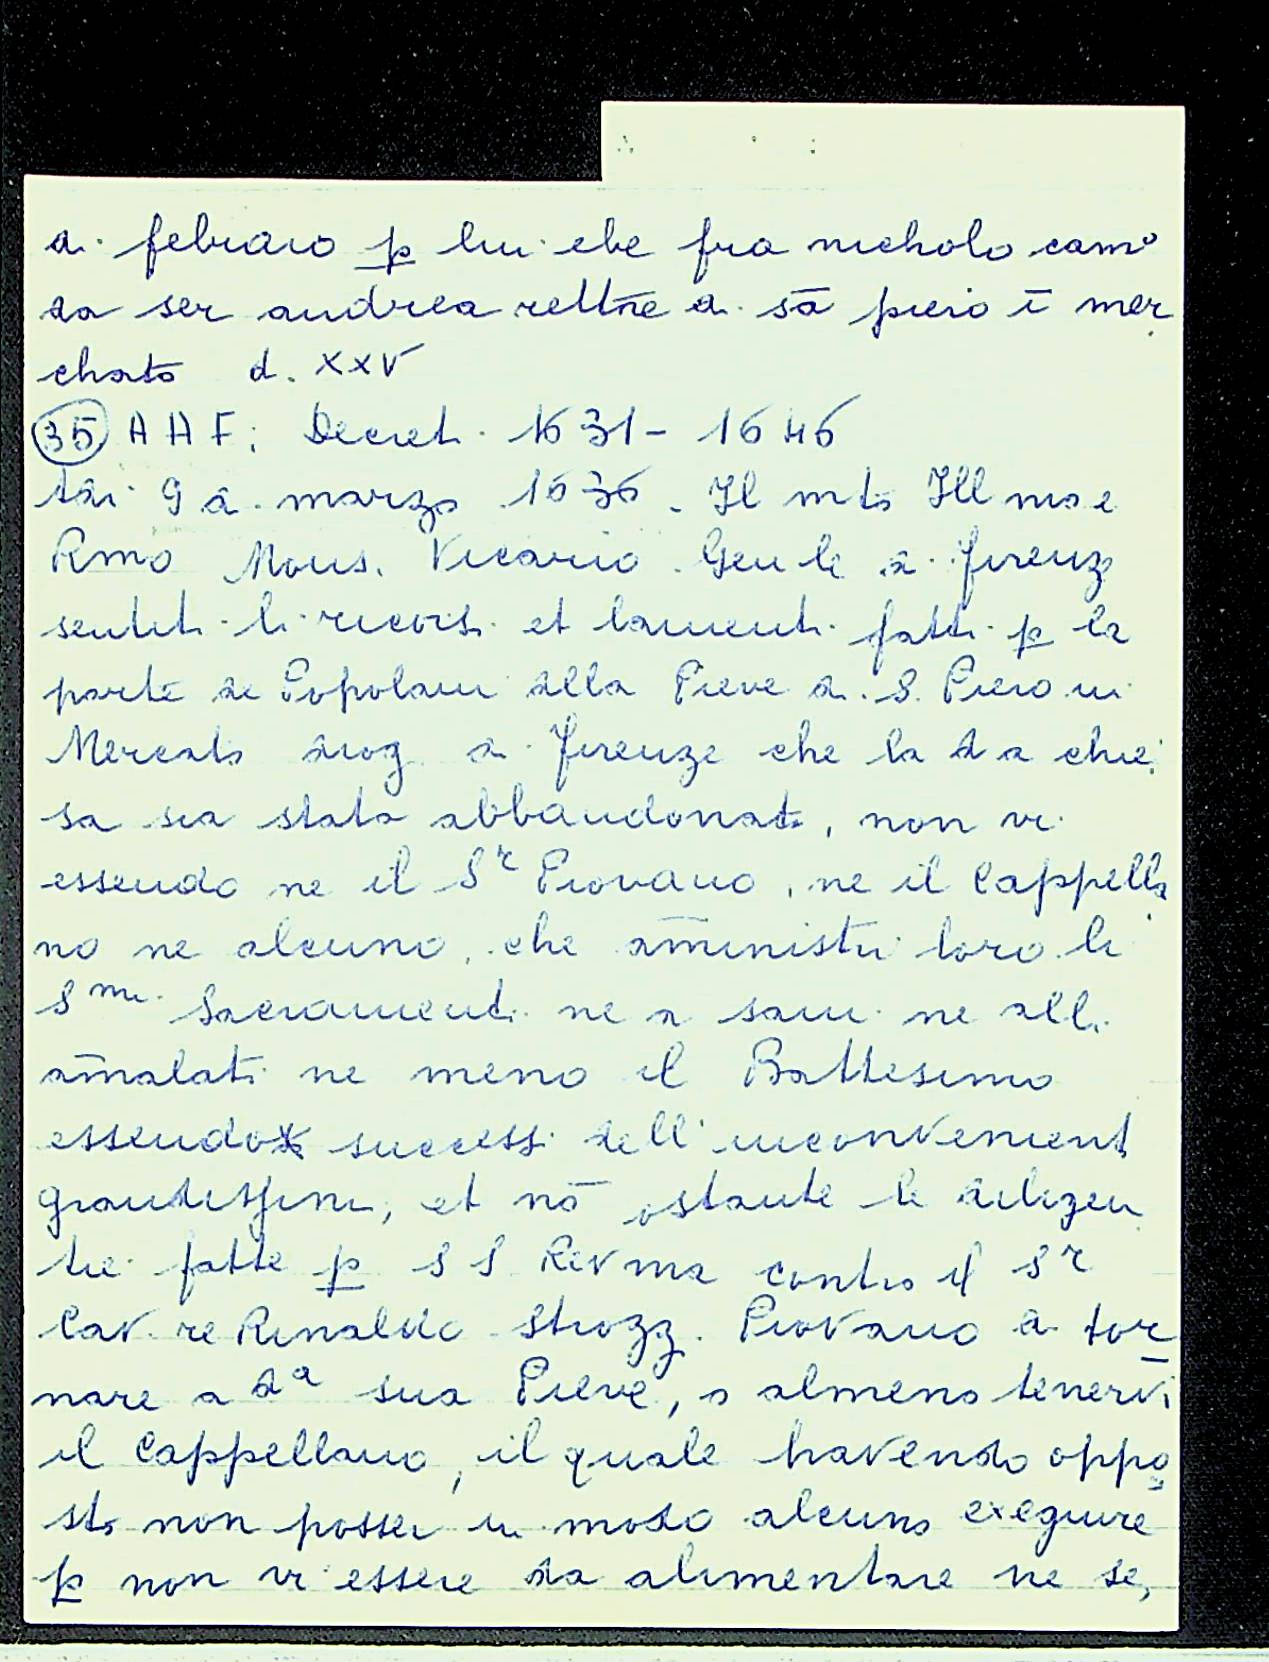 di febraio p lui ebe fra nicholo camo
da ser andrea rettōe di sā piero ī mer
chato d. XXV
(35) AAF; Decreti 1631-1646
Adi 9 di marzo 1636. Il mto Ill mo e
Rmo Mons. Vicario Gen le di Firenze
sentiti li ricorsi et lamenti fatti p la
parte de Popolani della Pieve di S. Piero in
Mercato diog di Firenze che la da chie
sa sia stata abbandonata, non vi
essendo ne il Sr Piovano, ne il Cappella
no ne alcuno, che am̄inistri loro li
S mi Sacramenti ne a sani ne alli
am̄alati ne meno il Battesimo
essendo successi dell' inconvenienti
grandissimi, et nō ostante le diligen
tie fatte p S S Rev ma contro il Sr
Cav. re Rinaldo Strozzi Piovano a tor
nare a da sua Pieve, o almeno tenervi
il Cappellano, il quale havendo oppo
sto non posser in modo alcuno exeguire
p non vi essere da alimentare ne se,